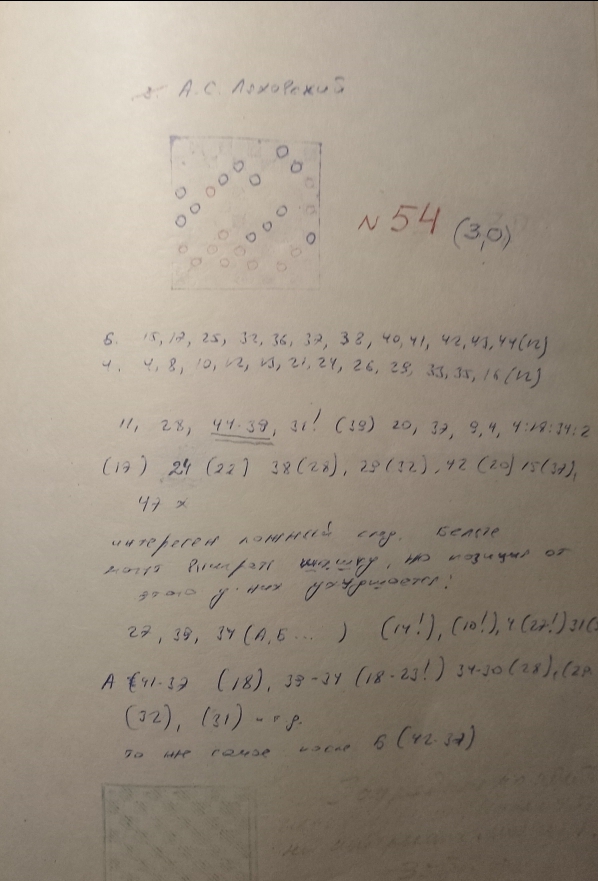 А. С. Ляховский
N 54 (3,0)
Б. 15, 17, 25, 32, 36, 37, 38, 40, 41, 42, 43, 44 (12)
Ч. 4, 8, 10, 12, 13, 21, 24, 26, 29, 33, 35, 16 (12)
11, 28, 44-39, 31! (39) 20, 37, 9, 4, 4:18:34:2
(17) 24 (22) 38 (28), 29 (32), 42 (20) 15 (37),
47 x
интересен ложный след. Белые
могут выиграть шашку, но позиция от
этого у них ухудшается!
27, 39, 34 (А, Б ... ) (14!), (10!), 4 (27!) 31
А (41-37 (18), 39-34 (18-23!) 34-30 (28),
(32), (31) и т.д.
то же самое после Б (42-37)